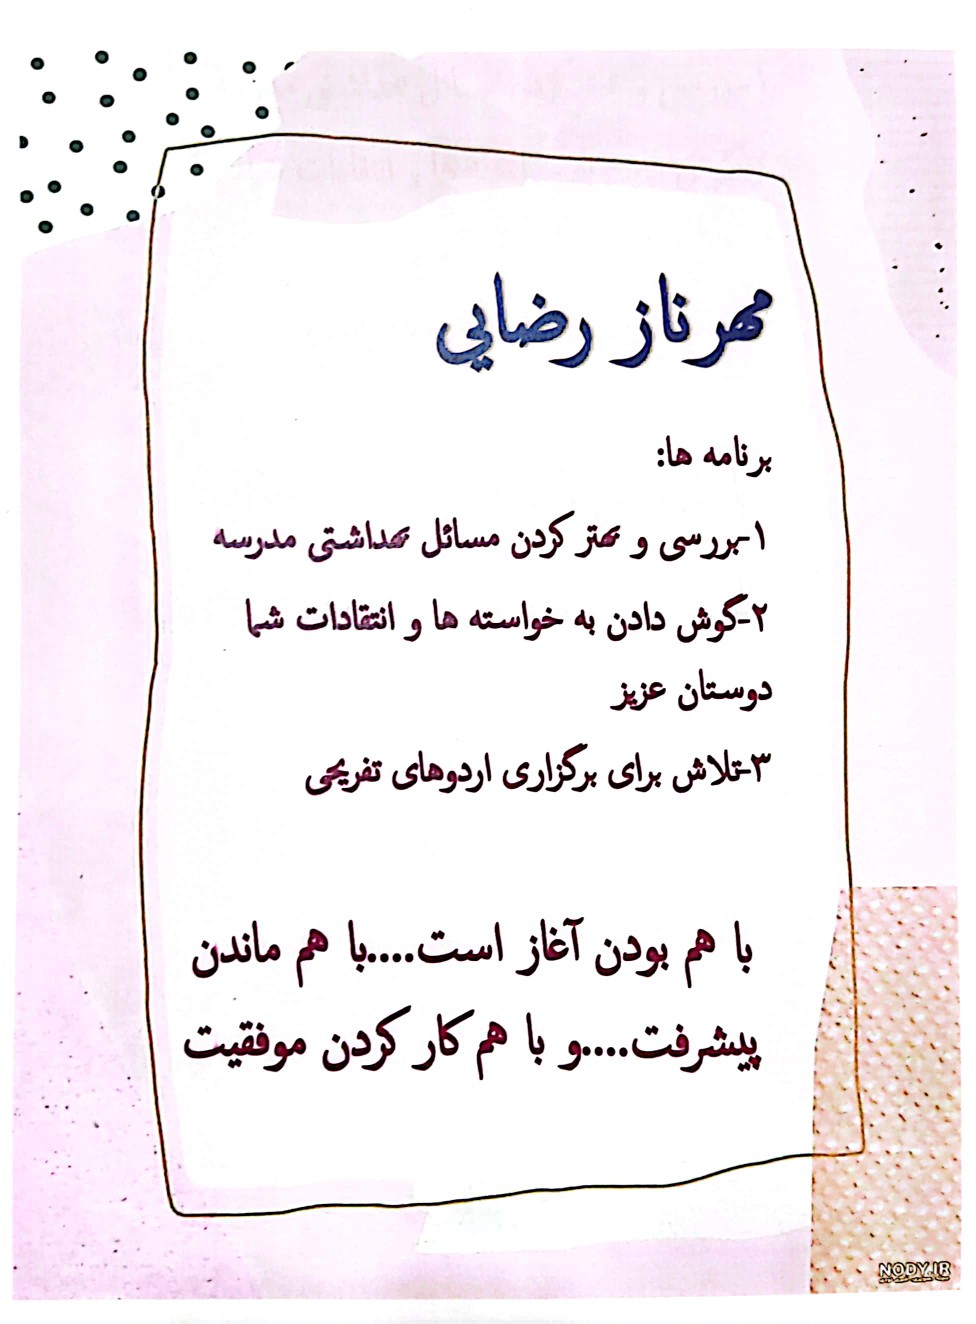 مهرناز رضایی
برنامه ها:
۱-بررسی و بهتر کردن مسائل بهداشتی مدرسه
۲-گوش دادن به خواسته ها و انتقادات شما
دوستان عزیز
۳-تلاش برای برگزاری اردوهای تفریحی
با هم بودن آغاز است....با هم ماندن
پیشرفت....و با هم کار کردن موفقیت
NODY.IR